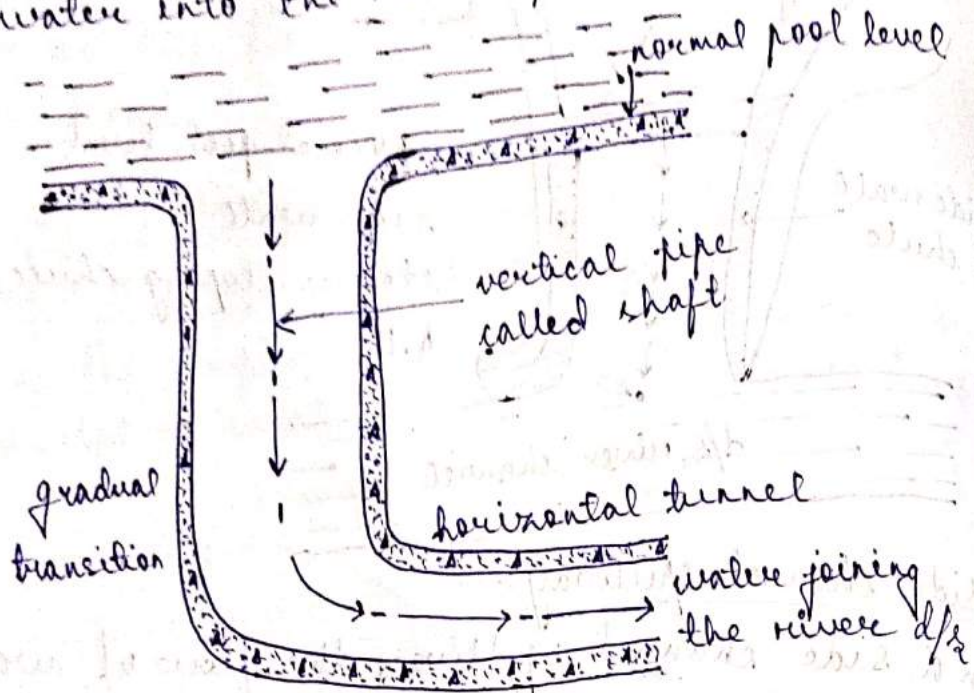 water into the
normal pool level
vertical pipe
called shaft
gradual
transition
horizontal tunnel
water joining
the river d/s